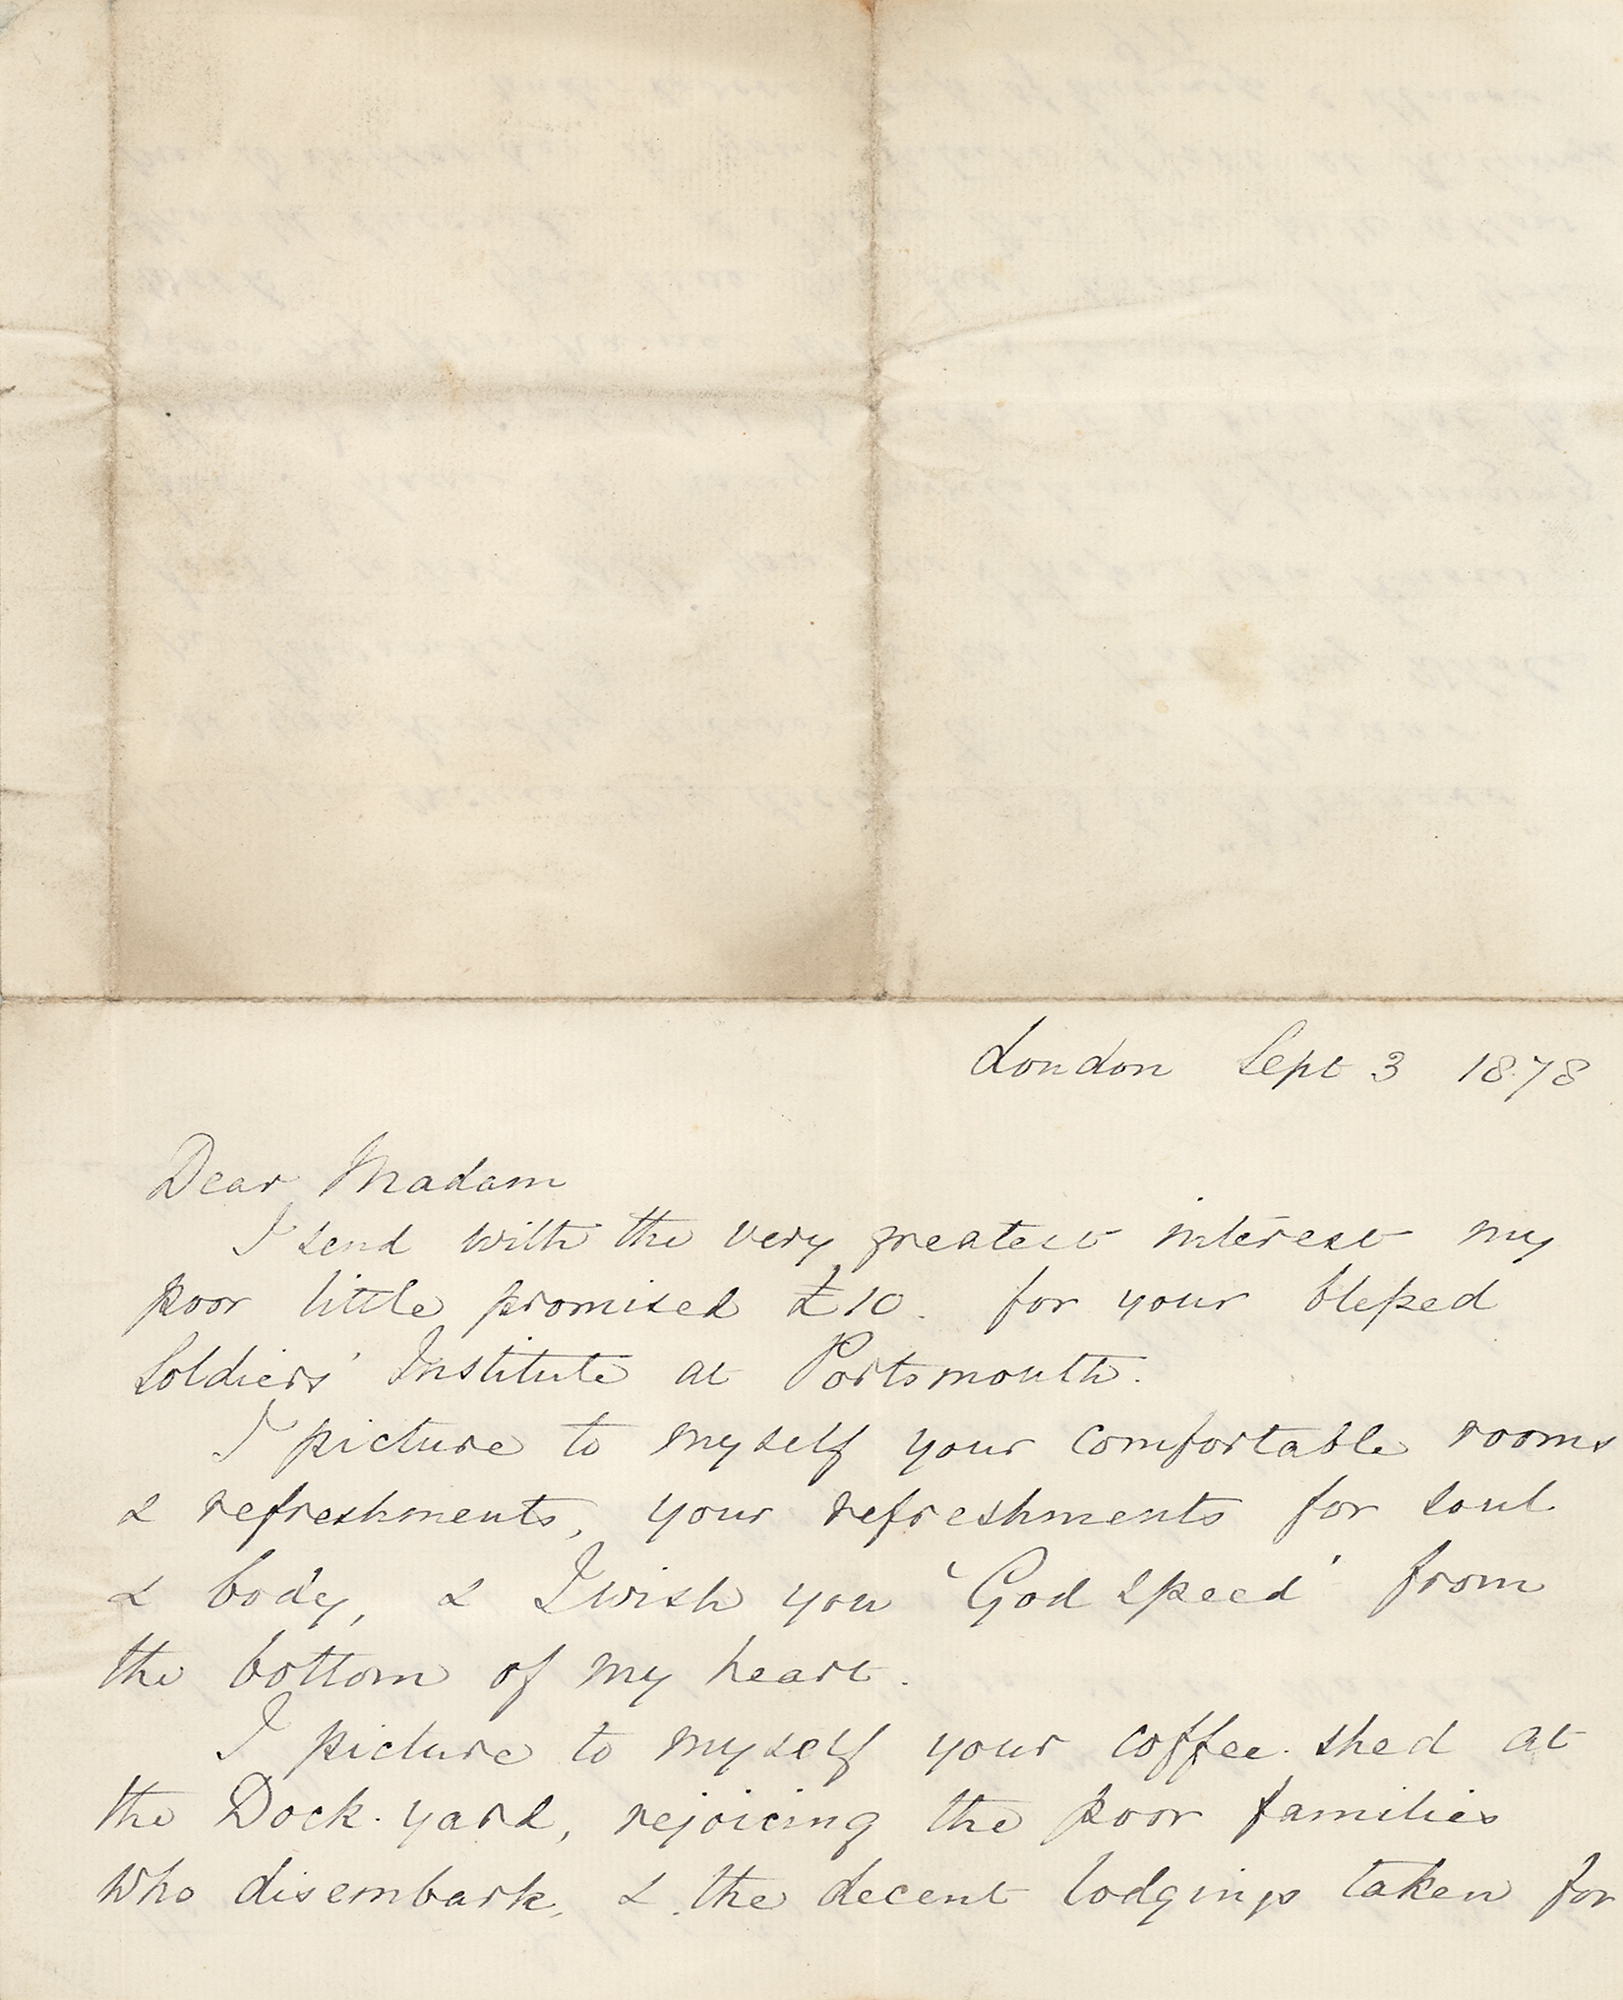 London Sept 3 1878
Dear Madam
I send with the very greatest interest my
poor little promised £10. for your blessed
Soldiers' Institute at Portsmouth.
I picture to myself your comfortable rooms
& refreshments, your refreshments for soul
& body, & I wish you 'God speed' from
the bottom of my heart.
I picture to myself your coffee. shed at
the Dock. yard, rejoicing the poor families
who disembark, & the decent lodgings taken for